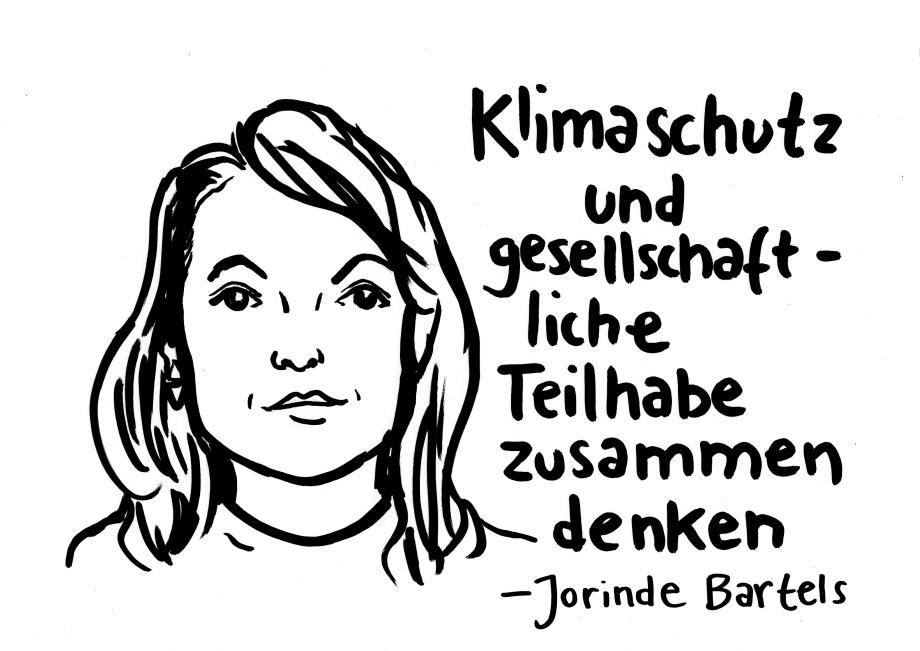 Klimaschutz
und
gesellschaft-
liche
Teilhabe
zusammen
denken
–Jorinde Bartels